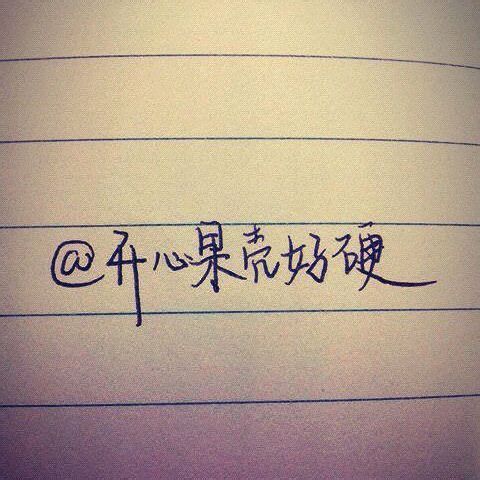 @开心果壳好硬